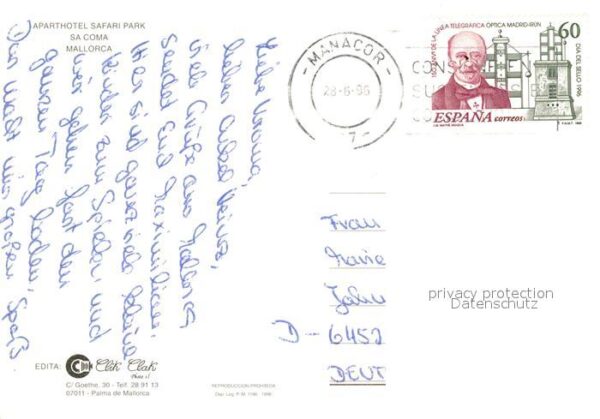 APARTHOTEL SAFARI PARK
SA COMA
MALLORCA
Liebe Verena,
lieber Onkel Heinz,
viele Grüße aus Mallorca
sendet Euch Maximilian.
Hier sind ganz viele kleine
Kinder zum Spielen und
wir gehen fast den
ganzen Tag baden.
Das macht mir großen Spaß.
MANACOR
28-6-96
150 ANIV. DE LA LINEA TELEGRAFICA OPTICA MADRID-IRUN
60
DIA DEL SELLO 1996
ESPAÑA correos
Frau
D - 6452
DEUT
privacy protection
Datenschutz
EDITA: Clik Clak
C/ Goethe, 30 - Telf. 28 91 13
07011 - Palma de Mallorca
REPRODUCCION PROHIBIDA